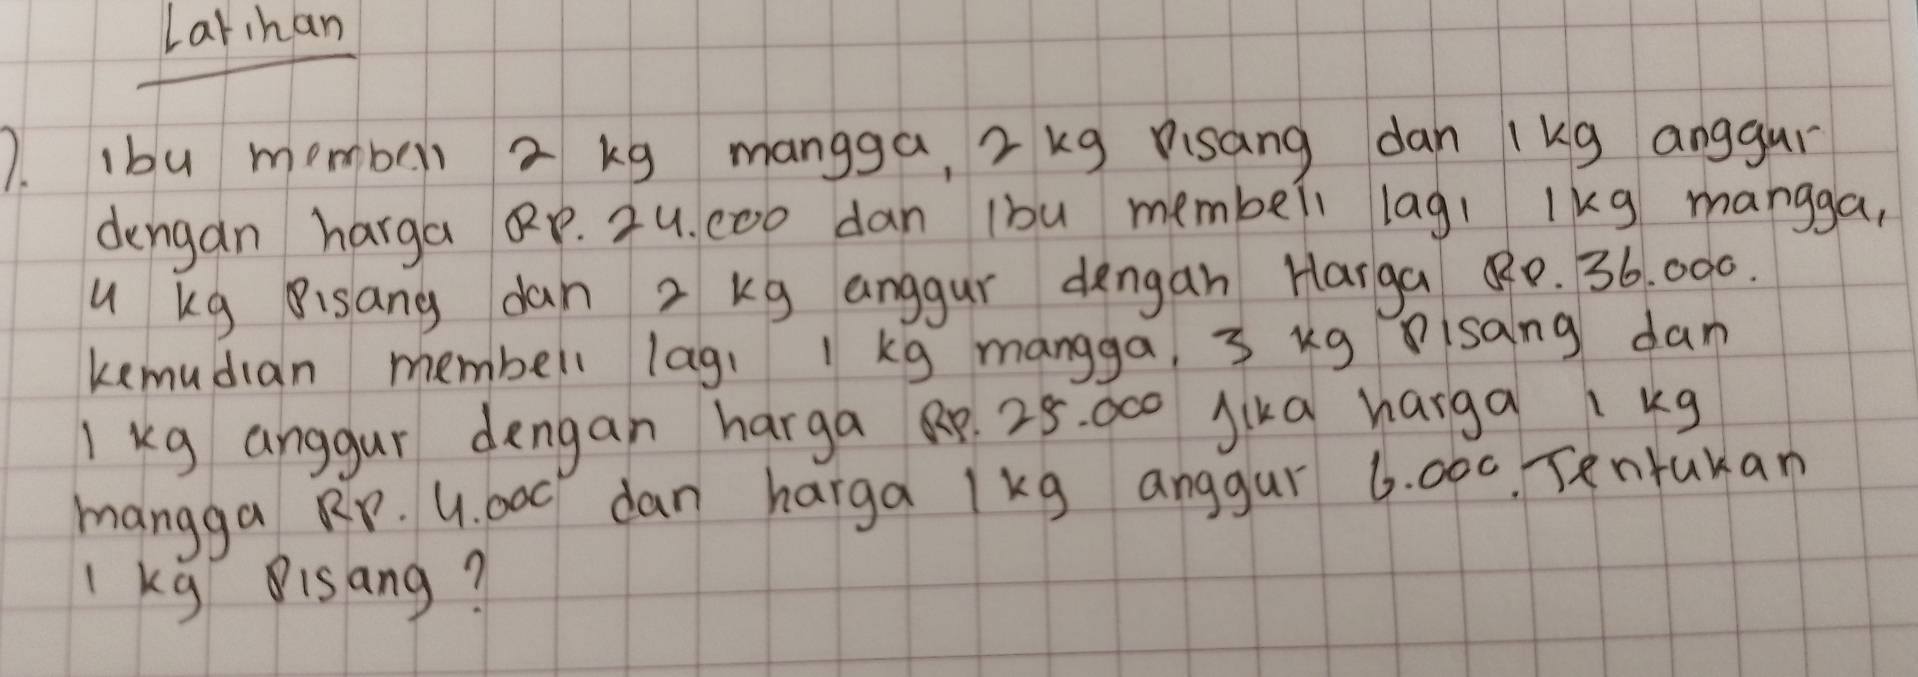 Latihan
1. Ibu membeli 2 kg mangga, 2 kg Pisang dan 1 kg anggur
dengan harga RP. 24.000 dan Ibu membeli lagi 1 kg mangga,
4 kg Pisang dan 2 kg anggur dengan Harga RP. 36.000.
kemudian membeli lagi 1 kg mangga, 3 kg Pisang dan
1 kg anggur dengan harga RP. 25.000 jika harga 1 kg
mangga RP. 4.000 dan harga 1 kg anggur 6.000. Tentukan
1 kg Pisang?